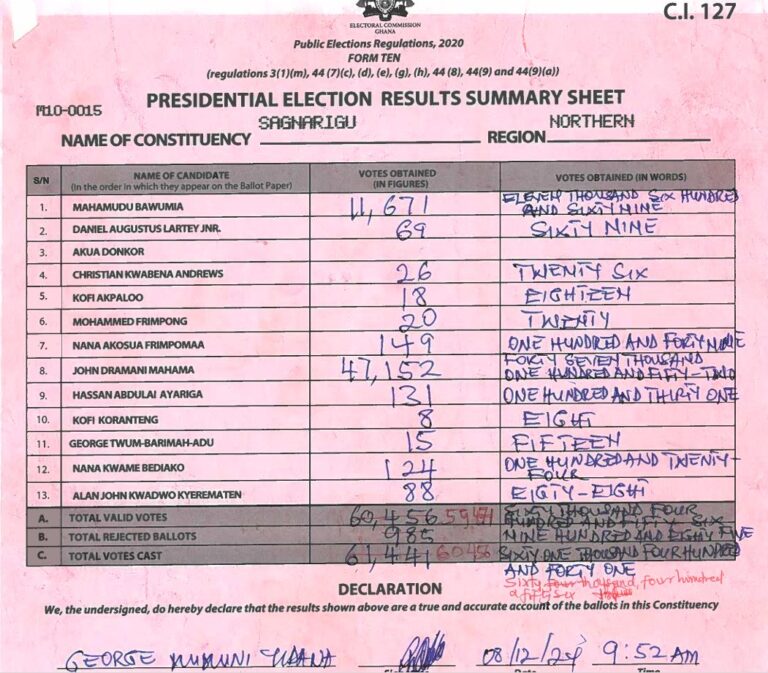 C.I. 127
ELECTORAL COMMISSION
GHANA
Public Elections Regulations, 2020
FORM TEN
(regulations 3(1)(m), 44 (7)(c), (d), (e), (g), (h), 44 (8), 44(9) and 44(9)(a))
M10-0015
PRESIDENTIAL ELECTION RESULTS SUMMARY SHEET
NAME OF CONSTITUENCY SAGNARIGU REGION NORTHERN
S/N NAME OF CANDIDATE (In the order in which they appear on the Ballot Paper) VOTES OBTAINED (IN FIGURES) VOTES OBTAINED (IN WORDS)
1. MAHAMUDU BAWUMIA 11,671 ELEVEN THOUSAND SIX HUNDRED AND SIXTY NINE
2. DANIEL AUGUSTUS LARTEY JNR. 69 SIXTY NINE
3. AKUA DONKOR
4. CHRISTIAN KWABENA ANDREWS 26 TWENTY SIX
5. KOFI AKPALOO 18 EIGHTEEN
6. MOHAMMED FRIMPONG 20 TWENTY
7. NANA AKOSUA FRIMPOMAA 149 ONE HUNDRED AND FORTY NINE
8. JOHN DRAMANI MAHAMA 47,152 FORTY SEVEN THOUSAND ONE HUNDRED AND FIFTY-TWO
9. HASSAN ABDULAI AYARIGA 131 ONE HUNDRED AND THIRTY ONE
10. KOFI KORANTENG 8 EIGHT
11. GEORGE TWUM-BARIMAH-ADU 15 FIFTEEN
12. NANA KWAME BEDIAKO 124 ONE HUNDRED AND TWENTY-FOUR
13. ALAN JOHN KWADWO KYEREMATEN 88 EIGTY-EIGHT
A. TOTAL VALID VOTES 60,456 SIXTY THOUSAND FOUR HUNDRED AND FIFTY SIX
B. TOTAL REJECTED BALLOTS 985 NINE HUNDRED AND EIGHTY FIVE
C. TOTAL VOTES CAST 61,441 60456 SIXTY ONE THOUSAND FOUR HUNDRED
AND FORTY ONE
Sixty four thousand, four hundred
DECLARATION
We, the undersigned, do hereby declare that the results shown above are a true and accurate account of the ballots in this Constituency
GEORGE 08/12/24 9:52 AM